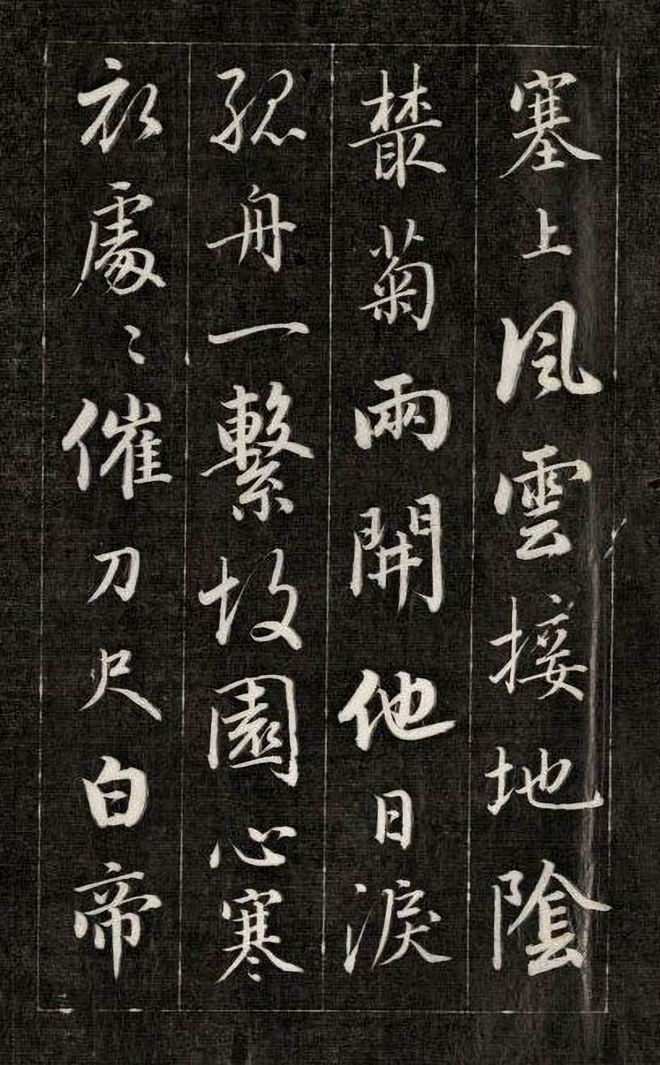 塞上風雲接地陰
叢菊兩開他日淚
孤舟一繫故園心寒
衣處〻催刀尺白帝